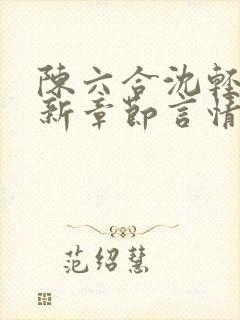 陳六合沈輕
新章節言情
范绍慧